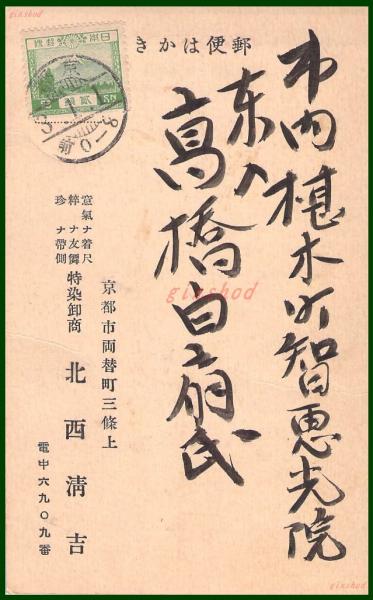 郵便はかき
市内椹木町智恵光院
東入
高橋白扇氏
意氣ナ着尺
粋ナ友禅
珍ナ帯側
特染卸商
京都市両替町三條上
北西淸吉
電中六九〇九番
ginshod
ginshod
ginshod